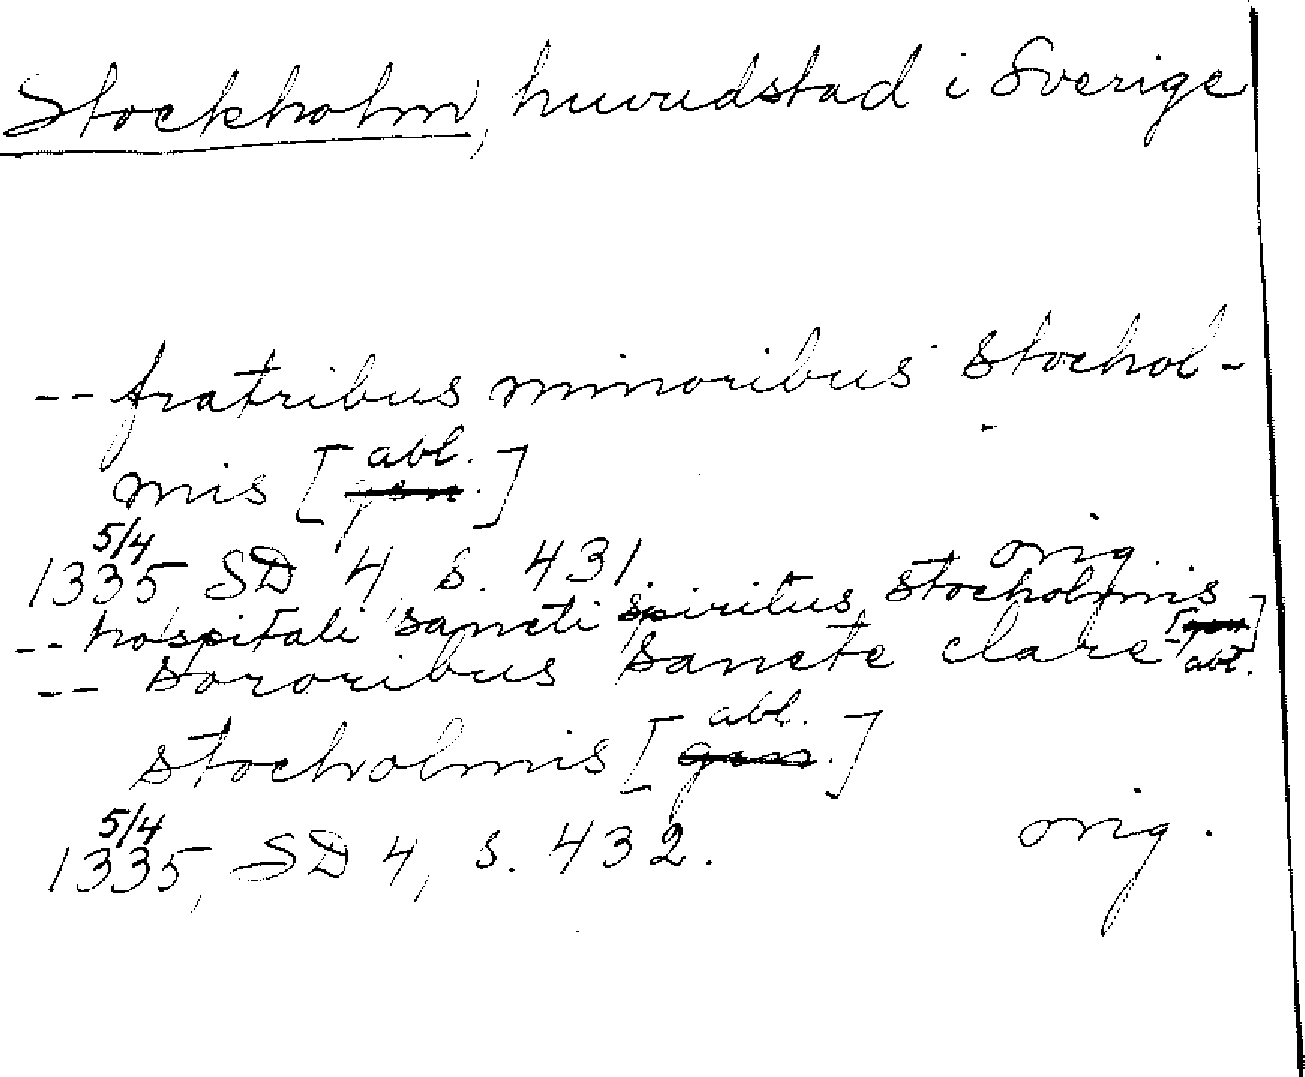 Stockholm, huvudstad i Sverige
-- fratribus minoribus stochol-
abl.
mis [gen.]
5/4
1335 SD 4, s. 431. orig.
-- hospitali sancti spiritus stocholmis [gen]
abl.
-- sororibus sancte clare
abl.
stocholmis [gen.]
5/4
1335, SD 4, s. 432. orig.